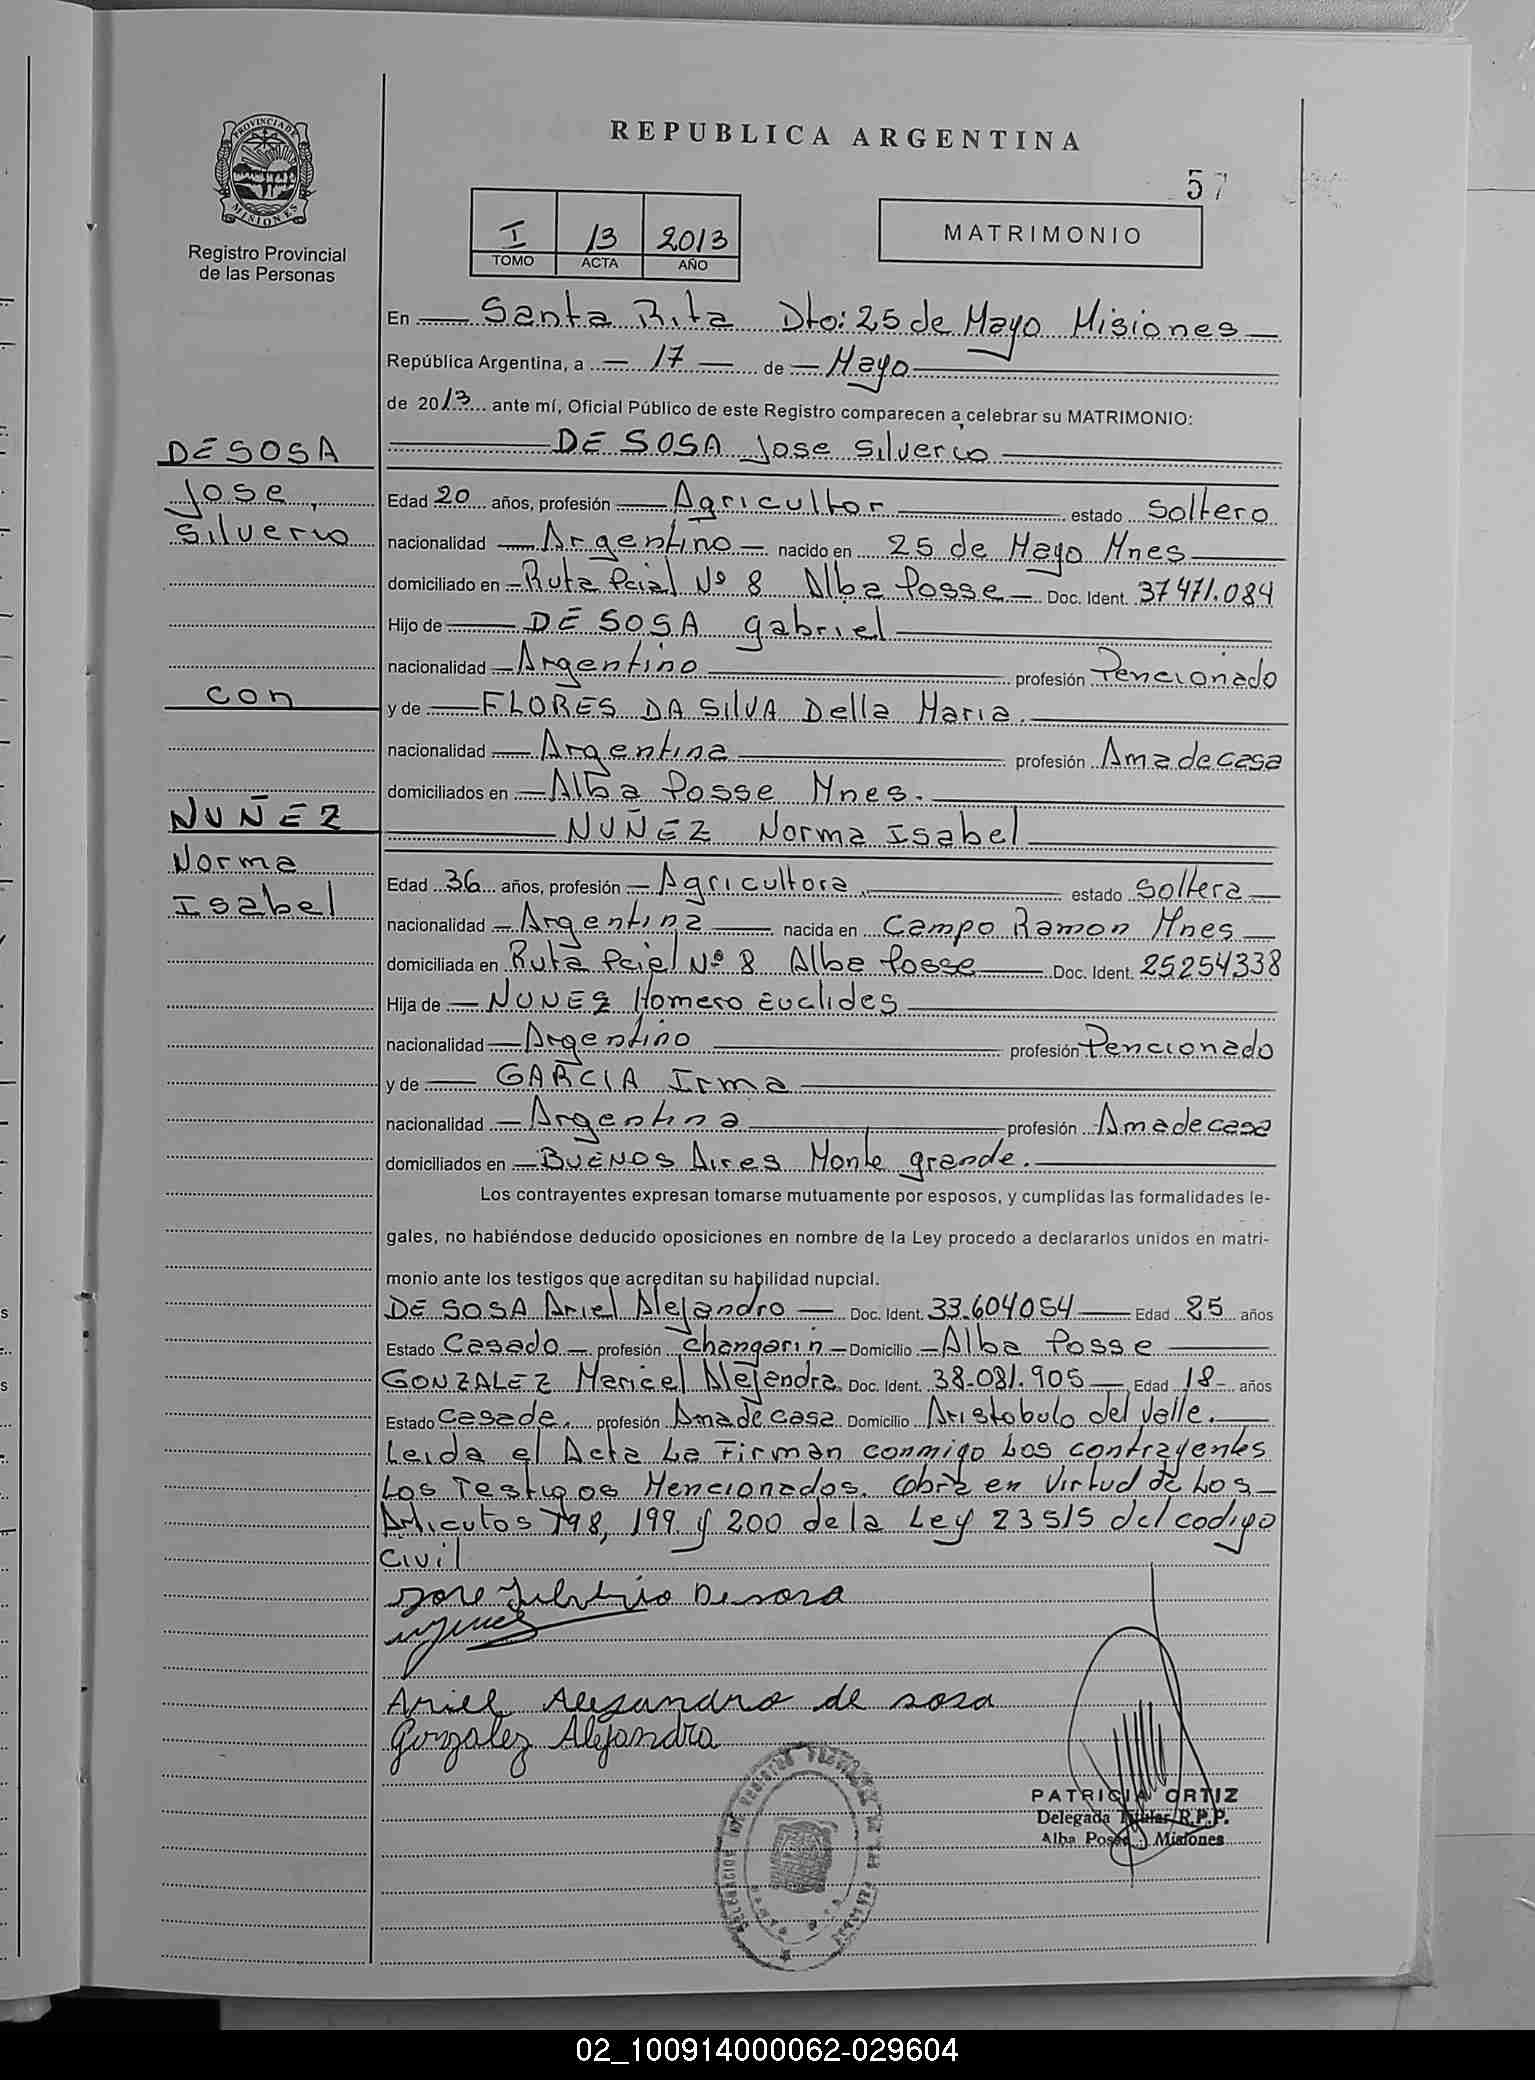 REPUBLICA ARGENTINA
57
PROVINCIA DE
MISIONES
Registro Provincial
de las Personas
I 13 2013
TOMO ACTA AÑO
MATRIMONIO
En Santa Rita Dto: 25 de Mayo Misiones
República Argentina, a 17 de Mayo
de 2013 ante mí, Oficial Público de este Registro comparecen a celebrar su MATRIMONIO:
DE SOSA Jose Silverio
DE SOSA
Jose
Silverio
con
NUÑEZ
Norma
Isabel
Edad 20 años, profesión Agricultor estado Soltero
nacionalidad Argentino nacido en 25 de Mayo Mnes
domiciliado en Ruta Pcial Nº 8 Alba Posse Doc. Ident. 37471.084
Hijo de DE SOSA Gabriel
nacionalidad Argentino profesión Pencionado
y de FLORES DA SILVA Della Maria.
nacionalidad Argentina profesión Ama de casa
domiciliados en Alba Posse Mnes.
NUÑEZ Norma Isabel
Edad 36 años, profesión Agricultora estado Soltera
nacionalidad Argentina nacida en Campo Ramon Mnes
domiciliada en Ruta Pcial Nº 8 Alba Posse Doc. Ident. 25254338
Hija de NUNEZ Homero Euclides
nacionalidad Argentino profesión Pencionado
y de GARCIA Irma
nacionalidad Argentina profesión Ama de casa
domiciliados en BUENOS Aires Monte grande.
Los contrayentes expresan tomarse mutuamente por esposos, y cumplidas las formalidades le-
gales, no habiéndose deducido oposiciones en nombre de la Ley procedo a declararlos unidos en matri-
monio ante los testigos que acreditan su habilidad nupcial.
DE SOSA Ariel Alejandro Doc. Ident. 33.604.054 Edad 25 años
Estado Casado profesión changarin Domicilio Alba Posse
GONZALEZ Maricel Alejandra Doc. Ident. 38.081.905 Edad 18 años
Estado Casada. profesión Ama de casa Domicilio Aristobulo del Valle.
Leida el Acta La Firman conmigo Los contrayentes
Los Testigos Mencionados. Obra en Virtud de Los
Articulos 198, 199 y 200 de la Ley 23515 del codigo
Civil
Jose Silverio Desosa
Ariel Alejandro de sosa
Gonzalez Alejandra
PATRICIA ORTIZ
Delegada Titular R.P.P.
Alba Posse - Misiones
02_100914000062-029604